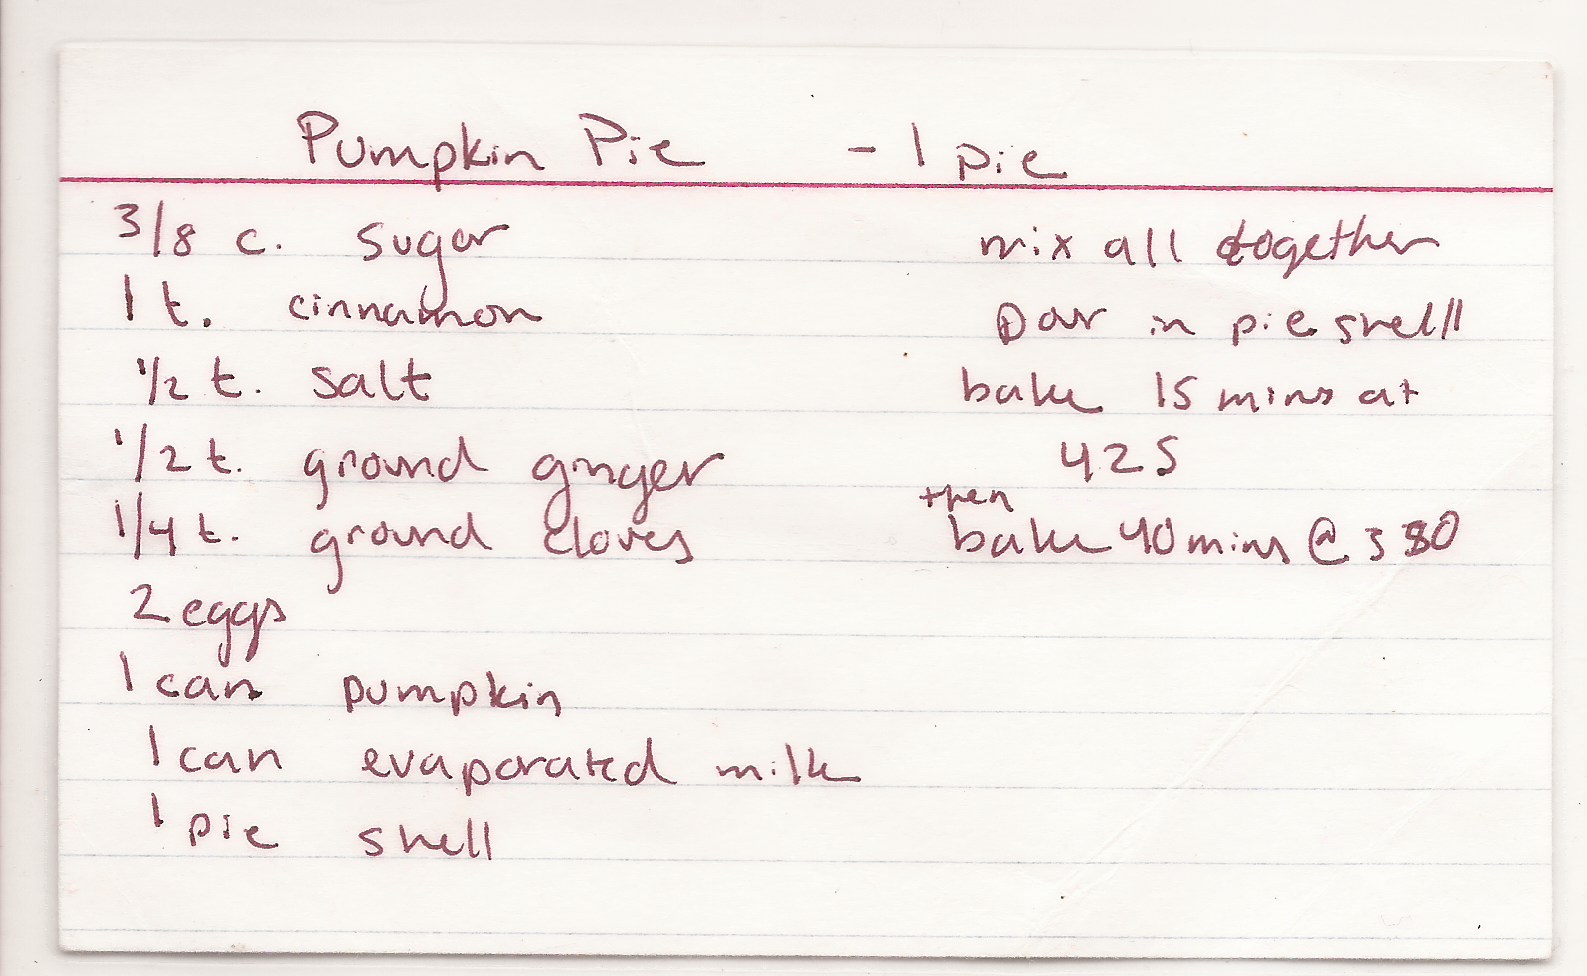 Pumpkin Pie - 1 pie
3/8 c. sugar
1 t. cinnamon
1/2 t. salt
1/2 t. ground ginger
1/4 t. ground cloves
2 eggs
1 can pumpkin
1 can evaporated milk
1 pie shell
mix all together
pour in pie shell
bake 15 mins at
425
then
bake 40 mins @